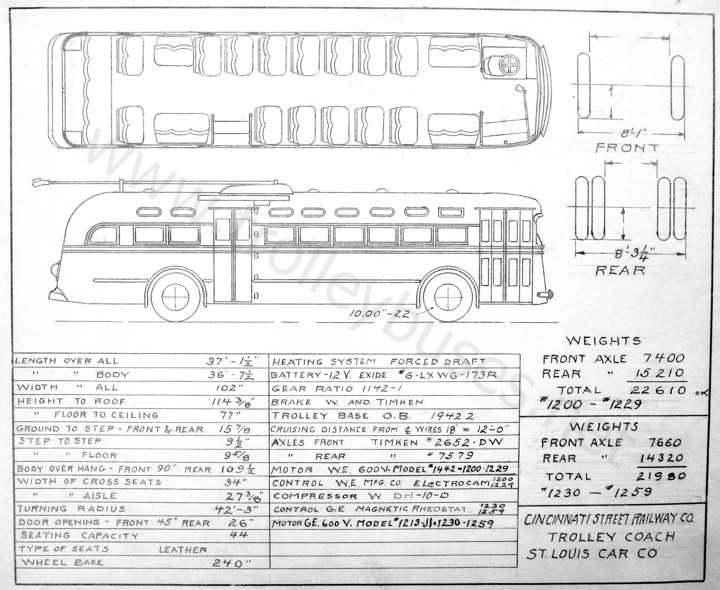 8'-1"
FRONT
8'-3¼"
REAR
10.00"-22
www.trolleybuses.net
LENGTH OVER ALL 37'-1½"
" " BODY 36'-7½
WIDTH " ALL 102"
HEIGHT TO ROOF 114⅜"
" FLOOR TO CEILING 77"
GROUND TO STEP - FRONT & REAR 15⅞
STEP TO STEP 9½"
" " FLOOR
BODY OVER HANG - FRONT 90" REAR 109½
WIDTH OF CROSS SEATS 34"
" " AISLE 27⅜"
TURNING RADIUS 42'-3"
DOOR OPENING - FRONT 45" REAR 26"
SEATING CAPACITY 44
TYPE OF SEATS LEATHER
WHEEL BASE 240"
HEATING SYSTEM FORCED DRAFT
BATTERY-12V. EXIDE #6-LXWG-173R
GEAR RATIO 1142-1
BRAKE W. AND TIMKEN
TROLLEY BASE O.B. 19422
CRUISING DISTANCE FROM ℄ WIRES 18' = 12'-0"
AXLES FRONT TIMKEN #2652-DW
" REAR " #7579
MOTOR W.E. 600V. MODEL #1442-1200-1229
CONTROL W.E. MFG. CO. ELECTROCAM 1200 1229
COMPRESSOR W DH-10-D
CONTROL G.E MAGNETIC RHEOSTAT 1230 1259
MOTOR G.E. 600 V. MODEL #1213-J1-1230-1259
WEIGHTS
FRONT AXLE 7400
REAR " 15210
TOTAL 22610 OK
#1200 - #1229
WEIGHTS
FRONT AXLE 7660
REAR " 14320
TOTAL 21980
#1230 - #1259
CINCINNATI STREET RAILWAY CO.
TROLLEY COACH
ST. LOUIS CAR CO